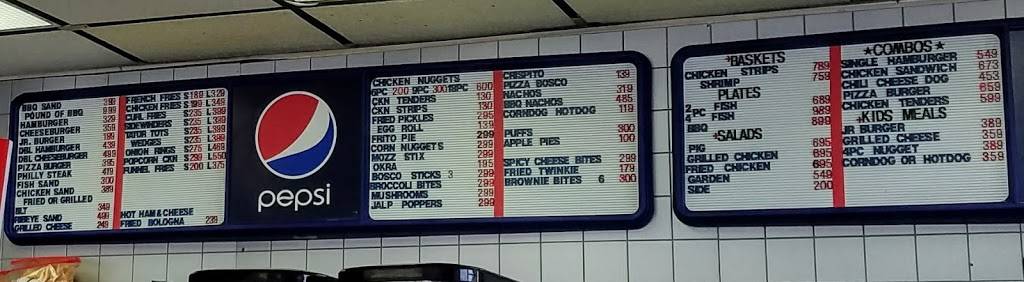 BBQ SAND 399
POUND OF BBQ 999
HAMBURGER 329
CHEESEBURGER 359
JR. BURGER
DBL HAMBURGER 439
DBL CHEESEBURGER 499
PIZZA BURGER
PHILLY STEAK 479
FISH SAND 300
CHICKEN SAND 389
FRIED OR GRILLED
BLT 349
RIBEYE SAND 499
GRILLED CHEESE 249
FRENCH FRIES S189 L329
CHEESE FRIES
CURL FRIES S235 L399
SIDEWINDERS S235 L399
TATOR TOTS S235 L399
WEDGES S235 L399
ONION RINGS S275 L469
POPCORN CKN S299 L550
FUNNEL FRIES S200 L375
HOT HAM & CHEESE
FRIED BOLOGNA 239
pepsi
CHICKEN NUGGETS
6PC 200 9PC 300 18PC 600
CKN TENDERS 130
CKN STRIPS 130
FRIED PICKLES 295
EGG ROLL 139
FRITO PIE 299
CORN NUGGETS 299
MOZZ STIX 299
OKRA 195
BOSCO STICKS 3 299
BROCCOLI BITES 299
MUSHROOMS 299
JALP POPPERS 299
CRESPITO 139
PIZZA BOSCO 319
NACHOS
BBQ NACHOS 485
CORNDOG HOTDOG 119
PUFFS 300
APPLE PIES 100
SPICY CHEESE BITES 299
FRIED TWINKIE 179
BROWNIE BITES 6 300
*BASKETS
CHICKEN STRIPS 789
SHRIMP 759
PLATES
2PC FISH 689
4PC FISH 989
BBQ 899
*SALADS
PIG 695
GRILLED CHICKEN 695
FRIED CHICKEN 695
GARDEN 549
SIDE 200
*COMBOS*
SINGLE HAMBURGER 549
CHICKEN SANDWICH 673
CHILI CHEESE DOG 453
PIZZA BURGER 579
CHICKEN TENDERS 599
*KIDS MEALS
JR BURGER 389
GRILLED CHEESE 359
4PC NUGGET 389
CORNDOG OR HOTDOG 359